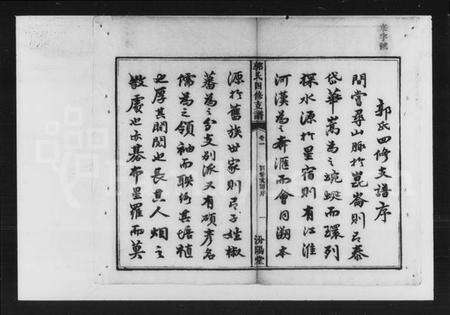 郭氏四修支譜序
間嘗尋山脉於崑崙則有泰
岱華嵩為之蜿蜒而環列
探水源於星宿則有江淮
河漢為之奔滙而會同溯本
郭氏四修支譜
卷一
一
汾陽堂
源於舊族世家則有子姓椒
蕃為之分支别派又有碩彦名
儒為之領袖而聯絡其培植
也厚其閥閲也長其人烟之
也亦碁布星羅而莫